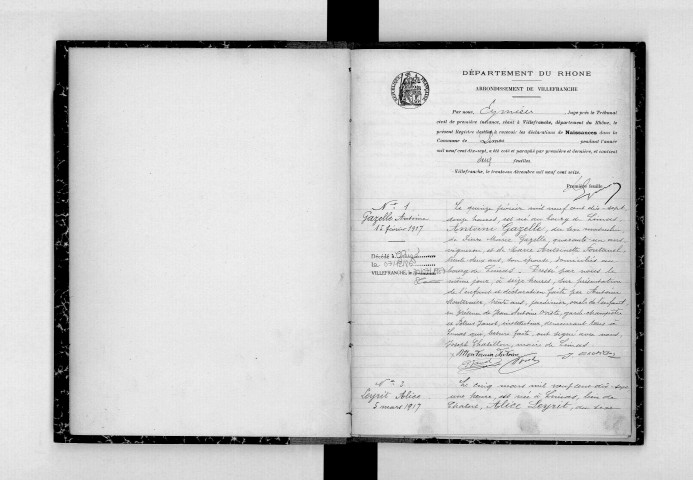 DÉPARTEMENT DU RHONE
ARRONDISSEMENT DE VILLEFRANCHE
Par nous, Juge près le Tribunal
civil de première instance, séant à Villefranche, département du Rhône, le
présent Registre destiné à recevoir les déclarations de Naissances dans la
Commune de Limas pendant l'année
mil neuf cent dix-sept, a été coté et paraphé par première et dernière, et contient
deux feuilles.
Villefranche, le trente-un décembre mil neuf cent seize.
Première feuille.
N° 1
Gazelle Antoine
15 février 1917
Le quinze février mil neuf cent dix-sept
heures, est né au bourg de Limas
Antoine Gazelle, du sexe masculin,
de Pierre Marie Gazelle, quarante-un ans
vigneron et de Marie Antoinette
trente deux ans, son épouse domiciliés au
bourg de Limas. Dressé par nous le
même jour, à seize heures, sur présentation
de l'enfant et déclaration faite par Antoine
trente ans, jardinier, oncle de l'enfant
en présence de Jean Antoine garde-champêtre
et instituteur, demeurant tous à
Limas qui, lecture faite, ont signé avec nous
Joseph Chatillon, maire de Limas.
Décédé à
le
VILLEFRANCHE, le
N° 2
Leyret Alice
5 mars 1917
Le cinq mars mil neuf cent dix-sept
une heure, est née à Limas, lieu de
Alice Leyret, du sexe